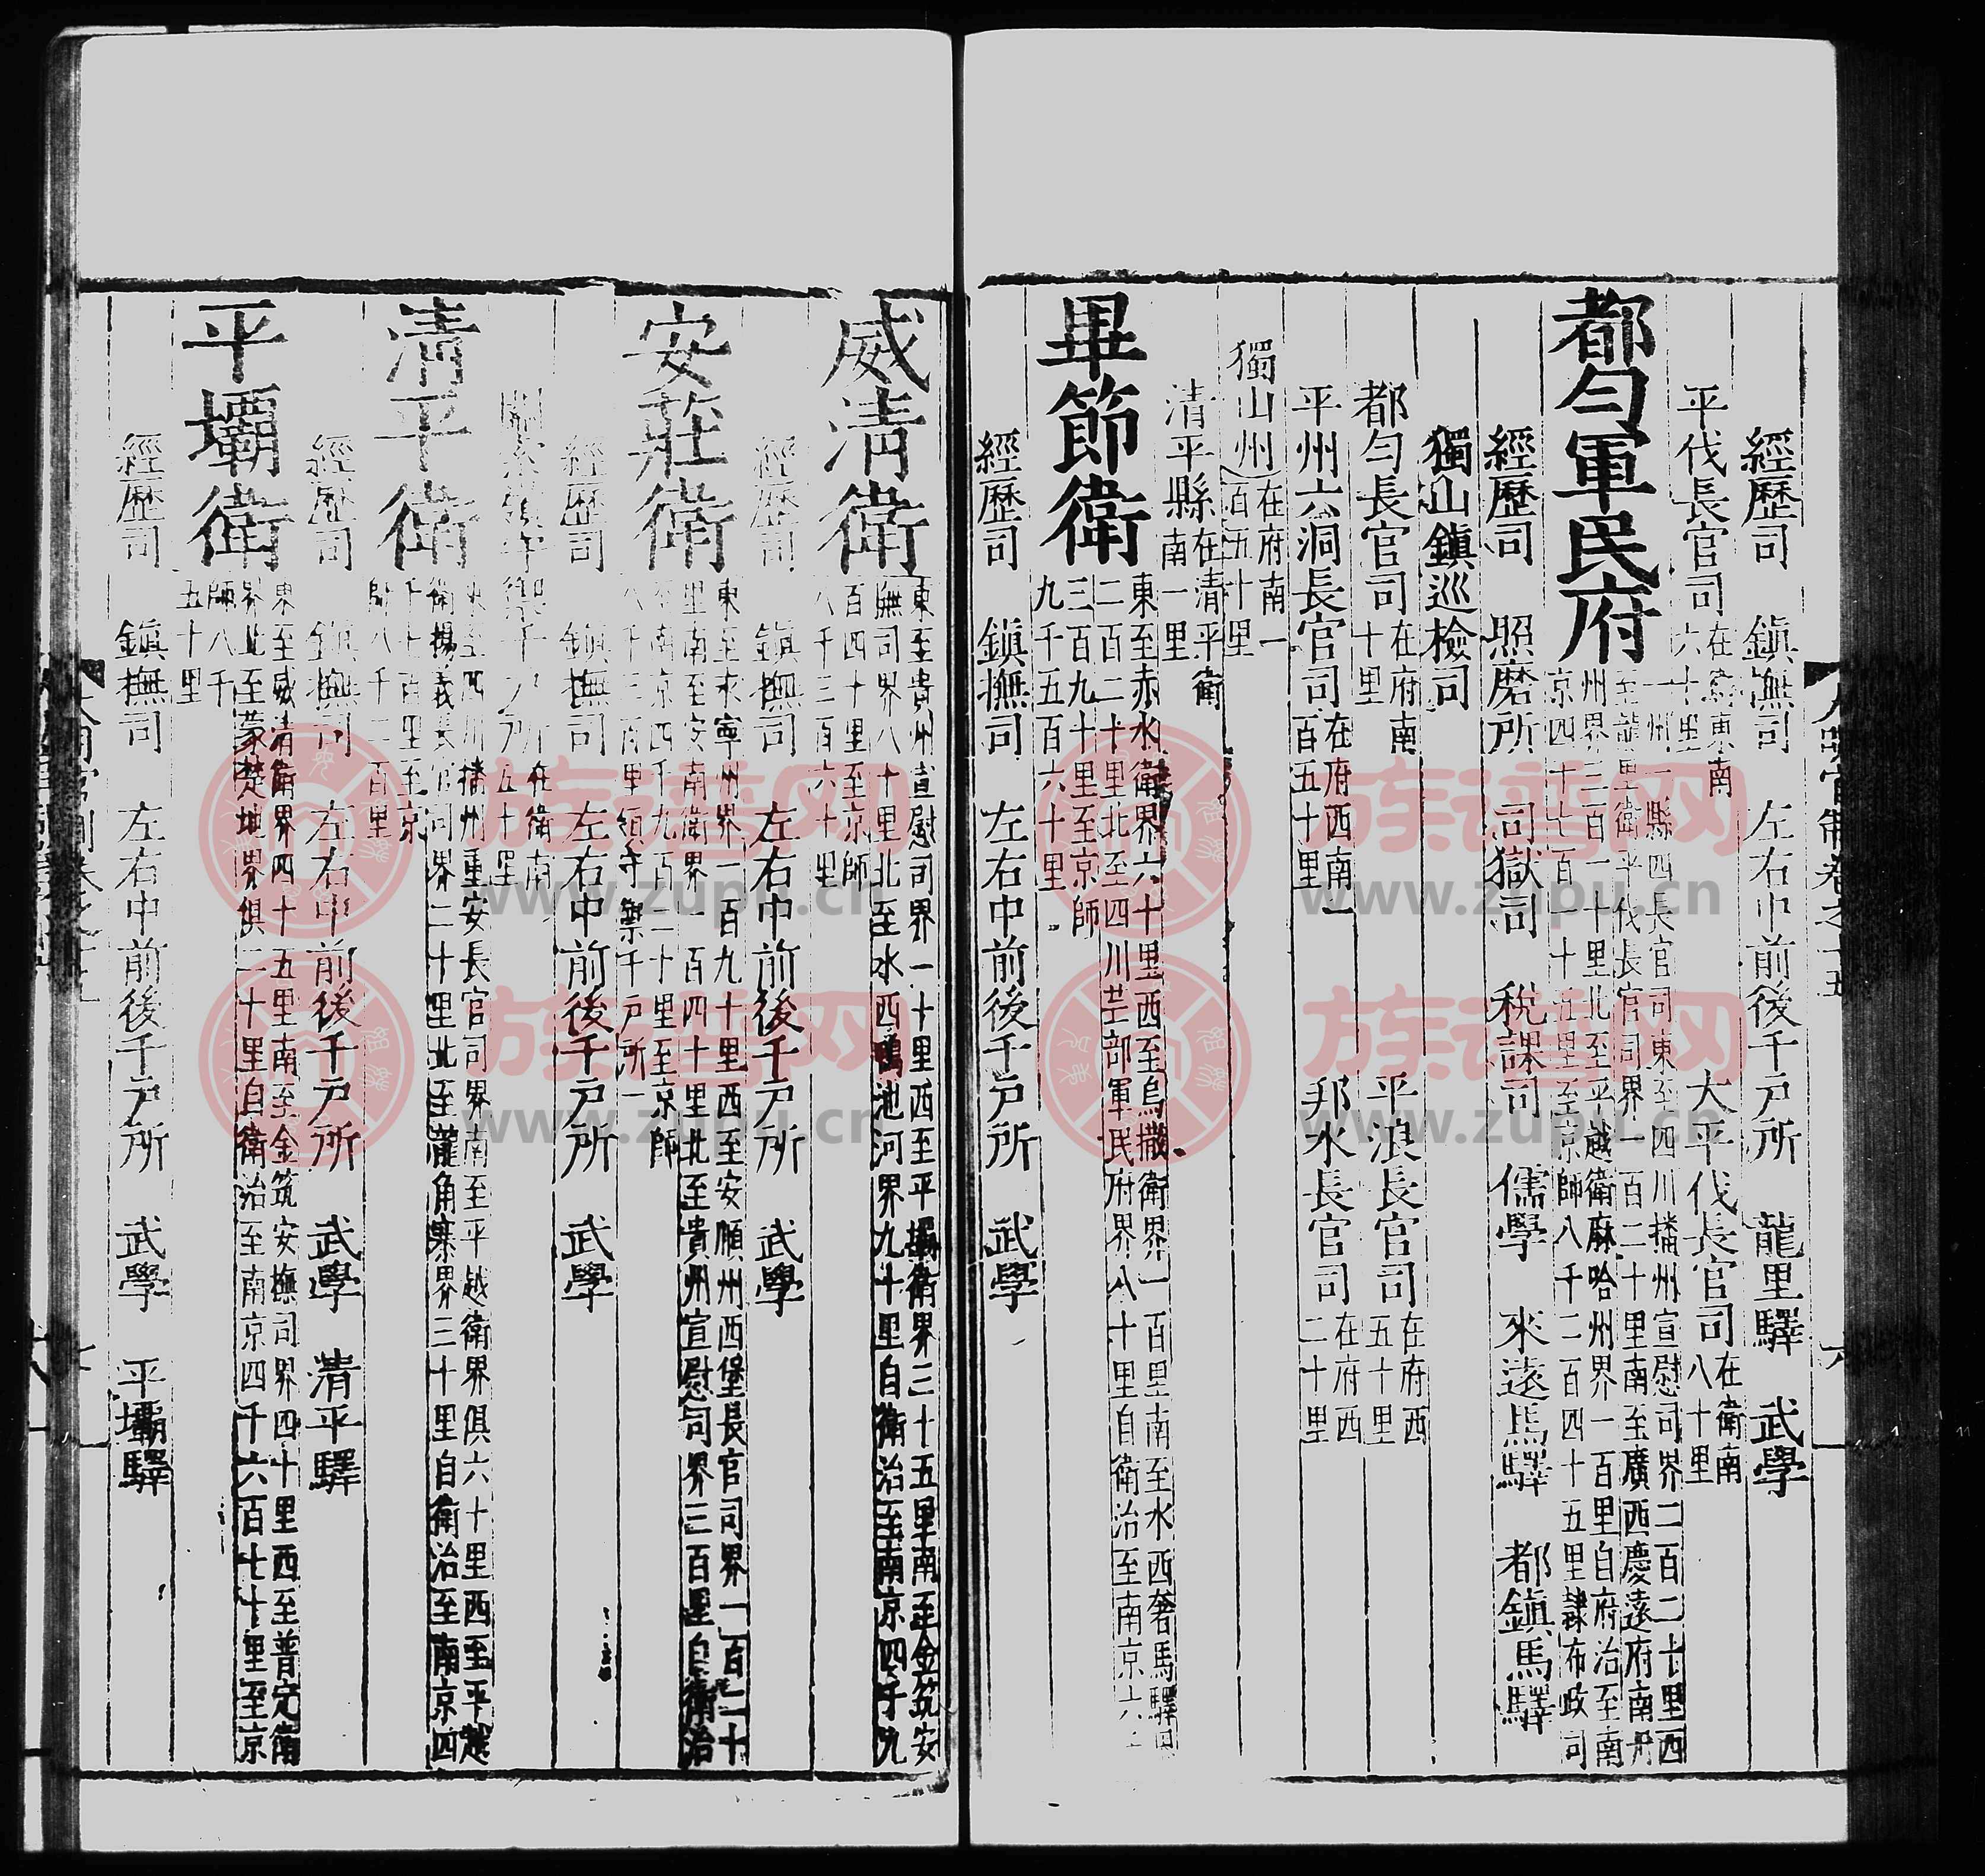 經歷司 鎮撫司 左右中前後千戶所 龍里驛 武學
平伐長官司在衛東南六十里 大平伐長官司在衛南八十里
都勻軍民府
一州一縣四長官司東至四川播州宣慰司界二百二十里西
至龍里衛平伐長官司界一百二十里南至廣西慶遠府南丹
州界三百一十里北至平越衛麻哈州界一百里自府治至南
京四十七百一十五里至京師八千二百四十五里隸布政司
經歷司 照磨所 司獄司 稅課司 儒學 來遠馬驛 都鎮馬驛
獨山鎮巡檢司
都勻長官司在府南十里 平浪長官司在府西五十里
平州六洞長官司在府西南一百五十里 邦水長官司在府西二十里
獨山州在府南一百五十里
清平縣在清平衛南一里
畢節衛
東至赤水衛界六十里西至烏撒衛界一百里南至水西奢馬驛界
二百二十里北至四川芒部軍民府界八十里自衛治至南京六千
三百九十里至京師
九千五百六十里
經歷司 鎮撫司 左右中前後千戶所 武學
威清衛
東至貴州宣慰司界一十里西至平壩衛界三十五里南至金筑安
撫司界八十里北至水西鴨池河界九十里自衛治至南京四千九
百四十里至京師
八千三百六十里
經歷司 鎮撫司 左右中前後千戶所 武學
安莊衛
東至永寧州界一百九十里西至安順州西堡長官司界一百二十
里南至安南衛界一百四十里北至貴州宣慰司界三百里自衛治
至南京四千九百二十里至京師
八千三百里領守禦千戶所一
經歷司 鎮撫司 左右中前後千戶所 武學
關索嶺守禦千戶所在衛南五十里
清平衛
東至四川播州重安長官司界南至平越衛界俱六十里西至平越
衛楊義長官司界二十里北至龍角寨界三十里自衛治至南京四
千七百里至京
師八千二百里
經歷司 鎮撫司 左右中前後千戶所 武學 清平驛
平壩衛
界至威清衛界四十五里南至金筑安撫司界四十里西至普定衛
界北至蒙楚地界俱二十里自衛治至南京四千六百七十里至京
師八千
五十里
經歷司 鎮撫司 左右中前後千戶所 武學 平壩驛
族谱网
www.zupu.cn
族谱网
www.zupu.cn
族谱网
www.zupu.cn
族谱网
www.zupu.cn